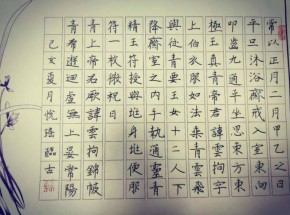 常以正月二月甲乙之日
平旦沐浴齋戒入室東向
叩齒九通平坐思東方東
極玉真青帝君諱雲拘字
上伯衣服如法乘青雲飛
與從青要玉女十二人下
降齋室之內手執通靈青
精玉符授與兆身兆便服
符一枚微祝曰
青上帝君厥諱雲拘錦帔
青希遊廻虛無上晏常陽
乙亥夏月